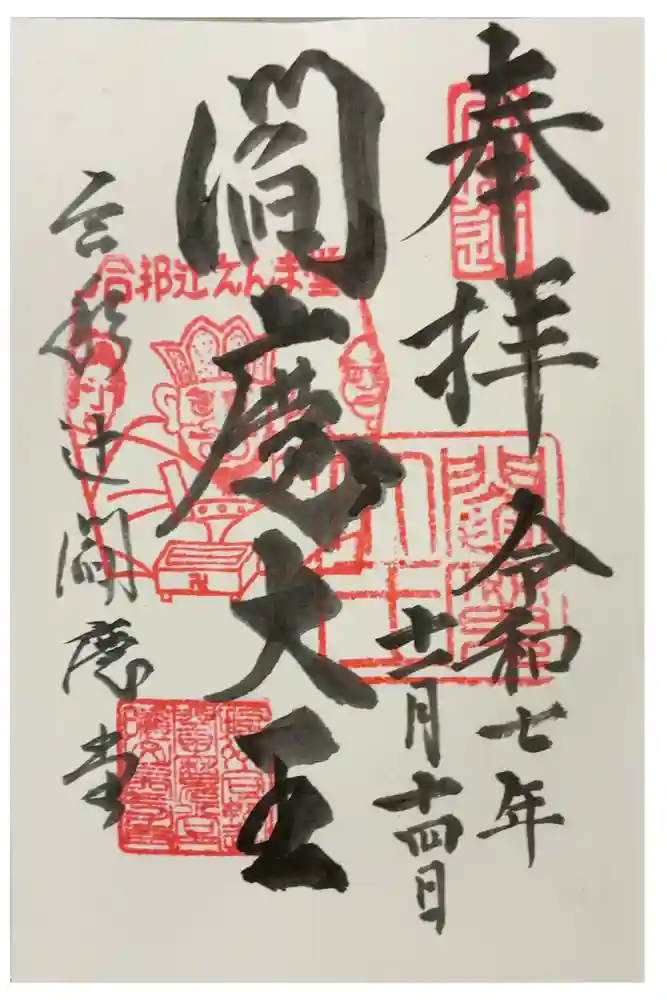 奉拝
令和七年
十一月十四日
閻魔大王
合邦辻えんま堂
合邦辻閻魔堂